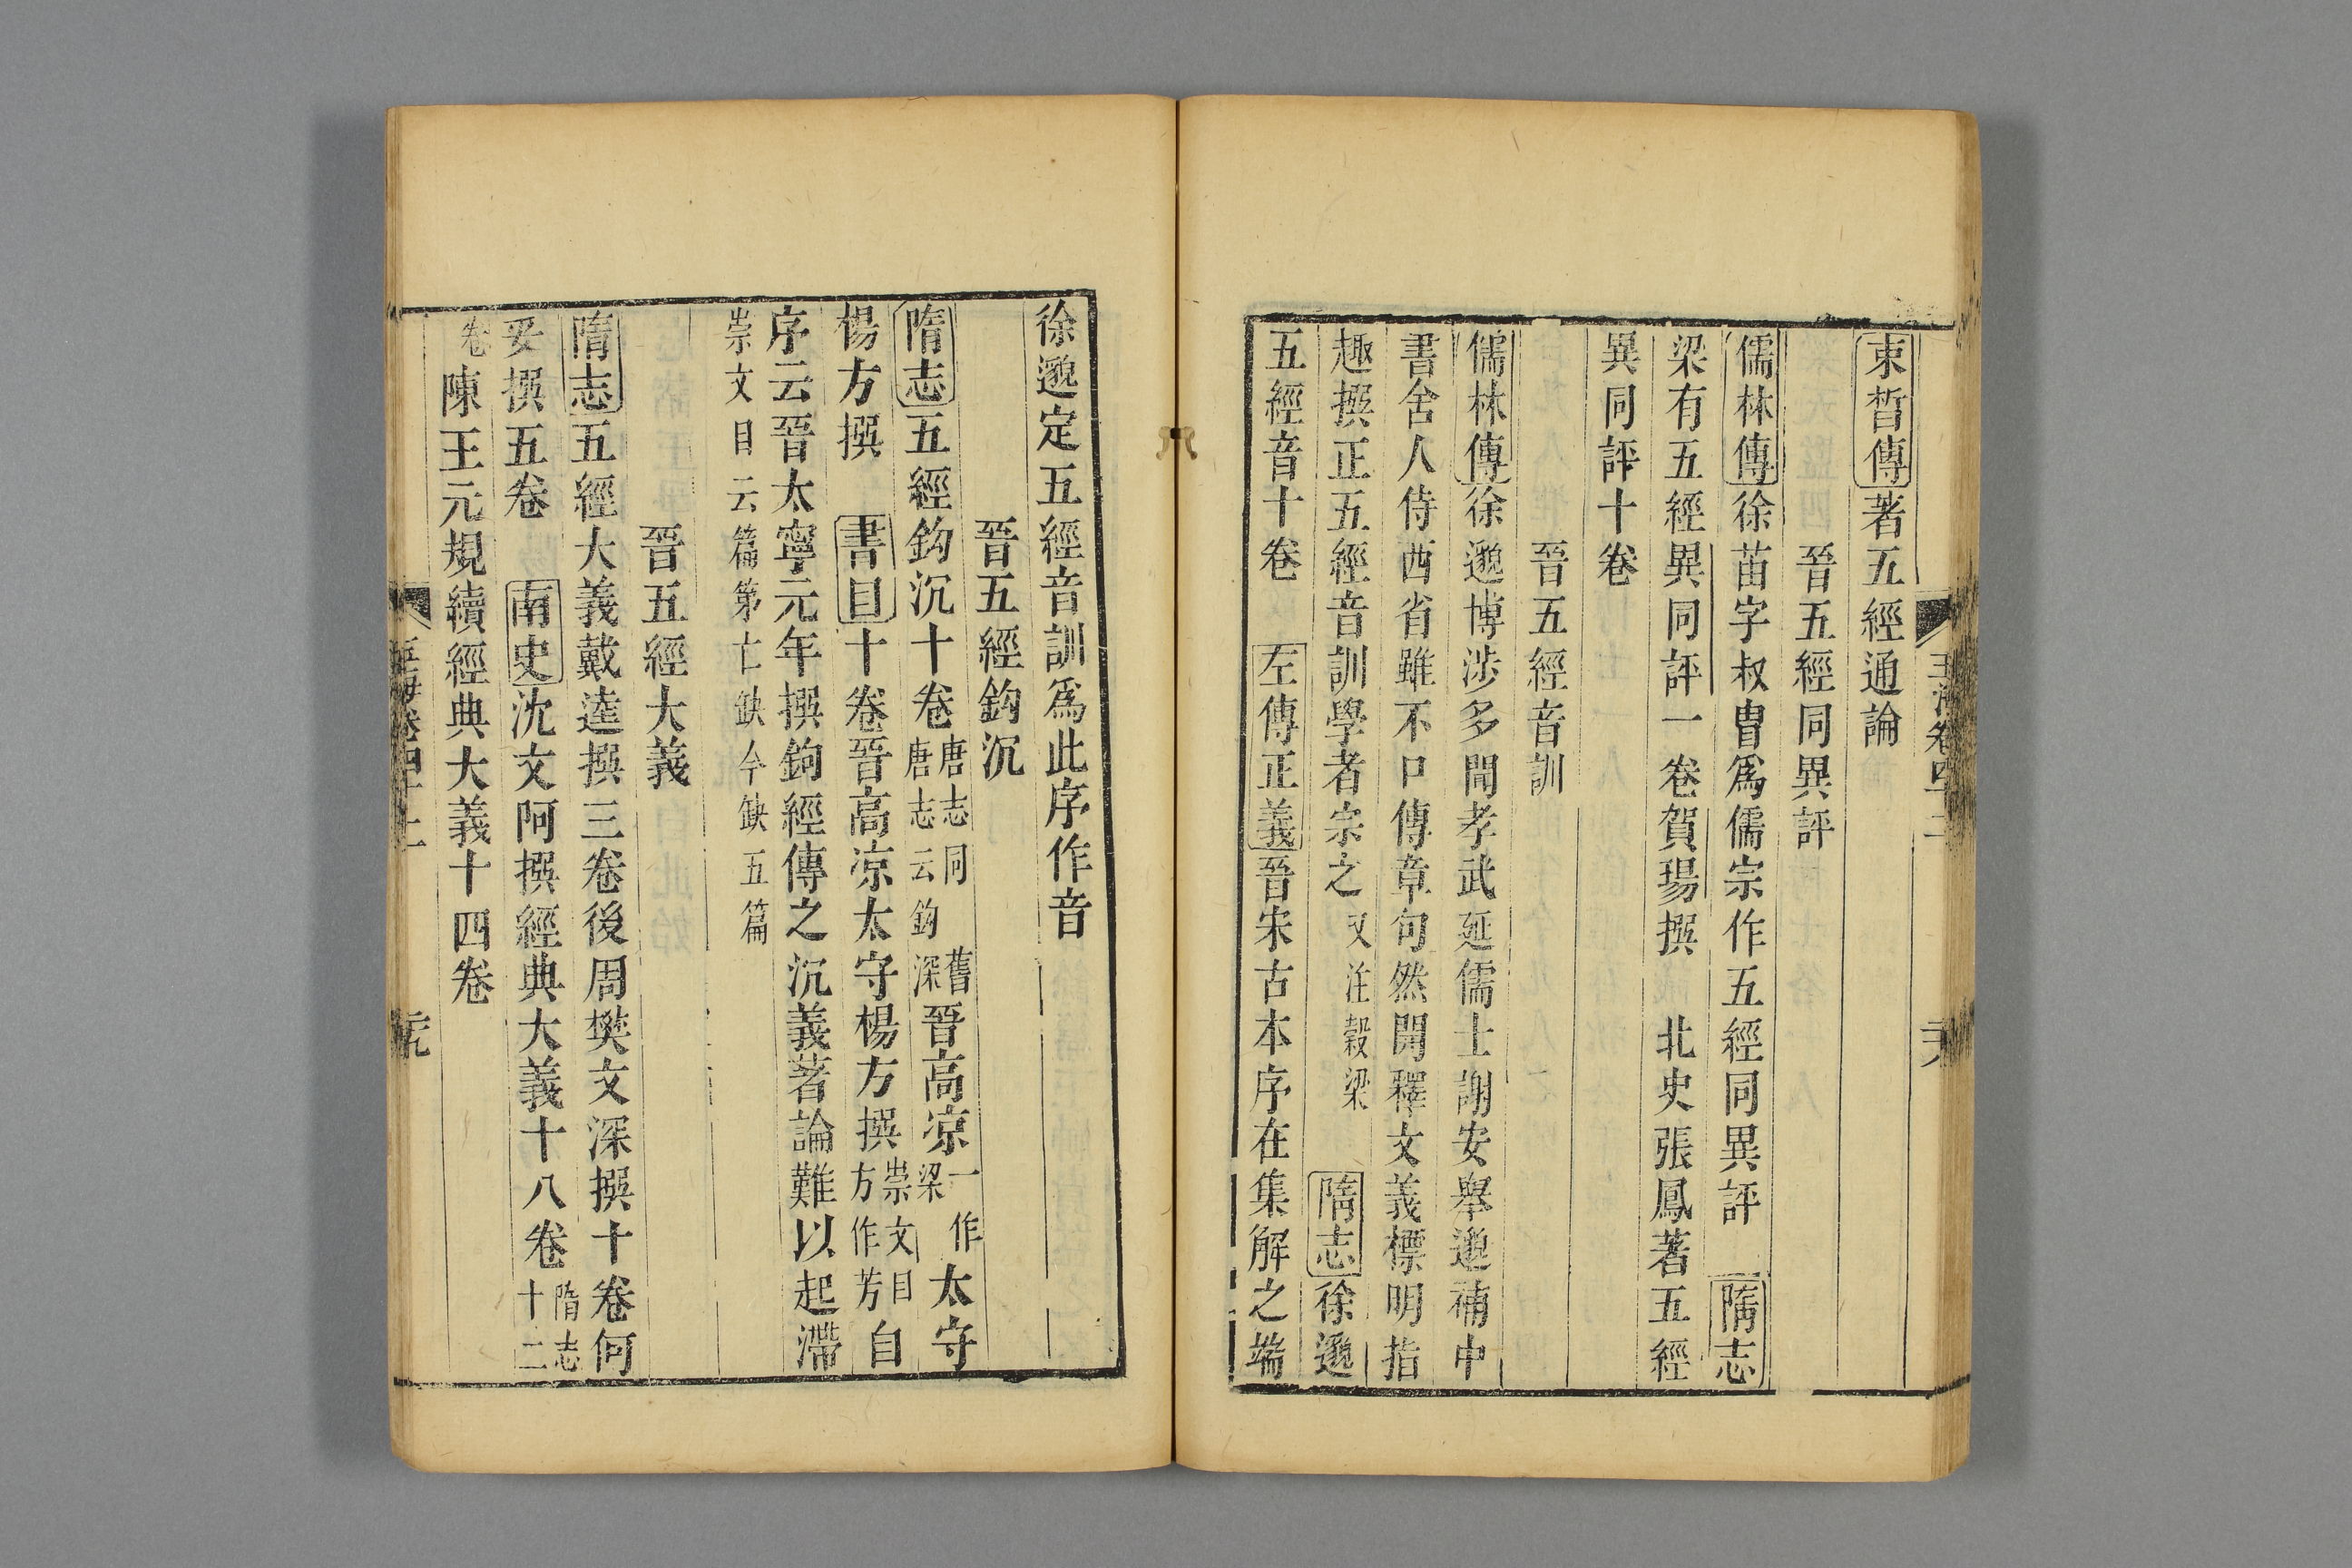 玉海卷四十二
束晳傳著五經通論
晉五經同異評
儒林傳徐苗字叔冑爲儒宗作五經同異評 隋志
梁有五經異同評一卷賀瑒撰 北史張鳳著五經
異同評十卷
晉五經音訓
儒林傳徐邈博涉多聞孝武延儒士謝安舉邈補中
書舍人侍西省雖不口傳章句然開釋文義標明指
趣撰正五經音訓學者宗之又注穀梁 隋志徐邈
五經音十卷 左傳正義晉宋古本序在集解之端
徐邈定五經音訓爲此序作音
晉五經鈎沉
隋志五經鈎沉十卷唐志同舊唐志云鈎深晉高凉一作梁太守
楊方撰 書目十卷晉高凉太守楊方撰崇文目方作芳自
序云晉太寧元年撰鈎經傳之沉義著論難以起滯
崇文目云篇第亡缺今缺五篇
晉五經大義
隋志五經大義戴逵撰三卷後周樊文深撰十卷何
妥撰五卷 南史沈文阿撰經典大義十八卷隋志十二
卷陳王元規續經典大義十四卷
玉海卷四十二